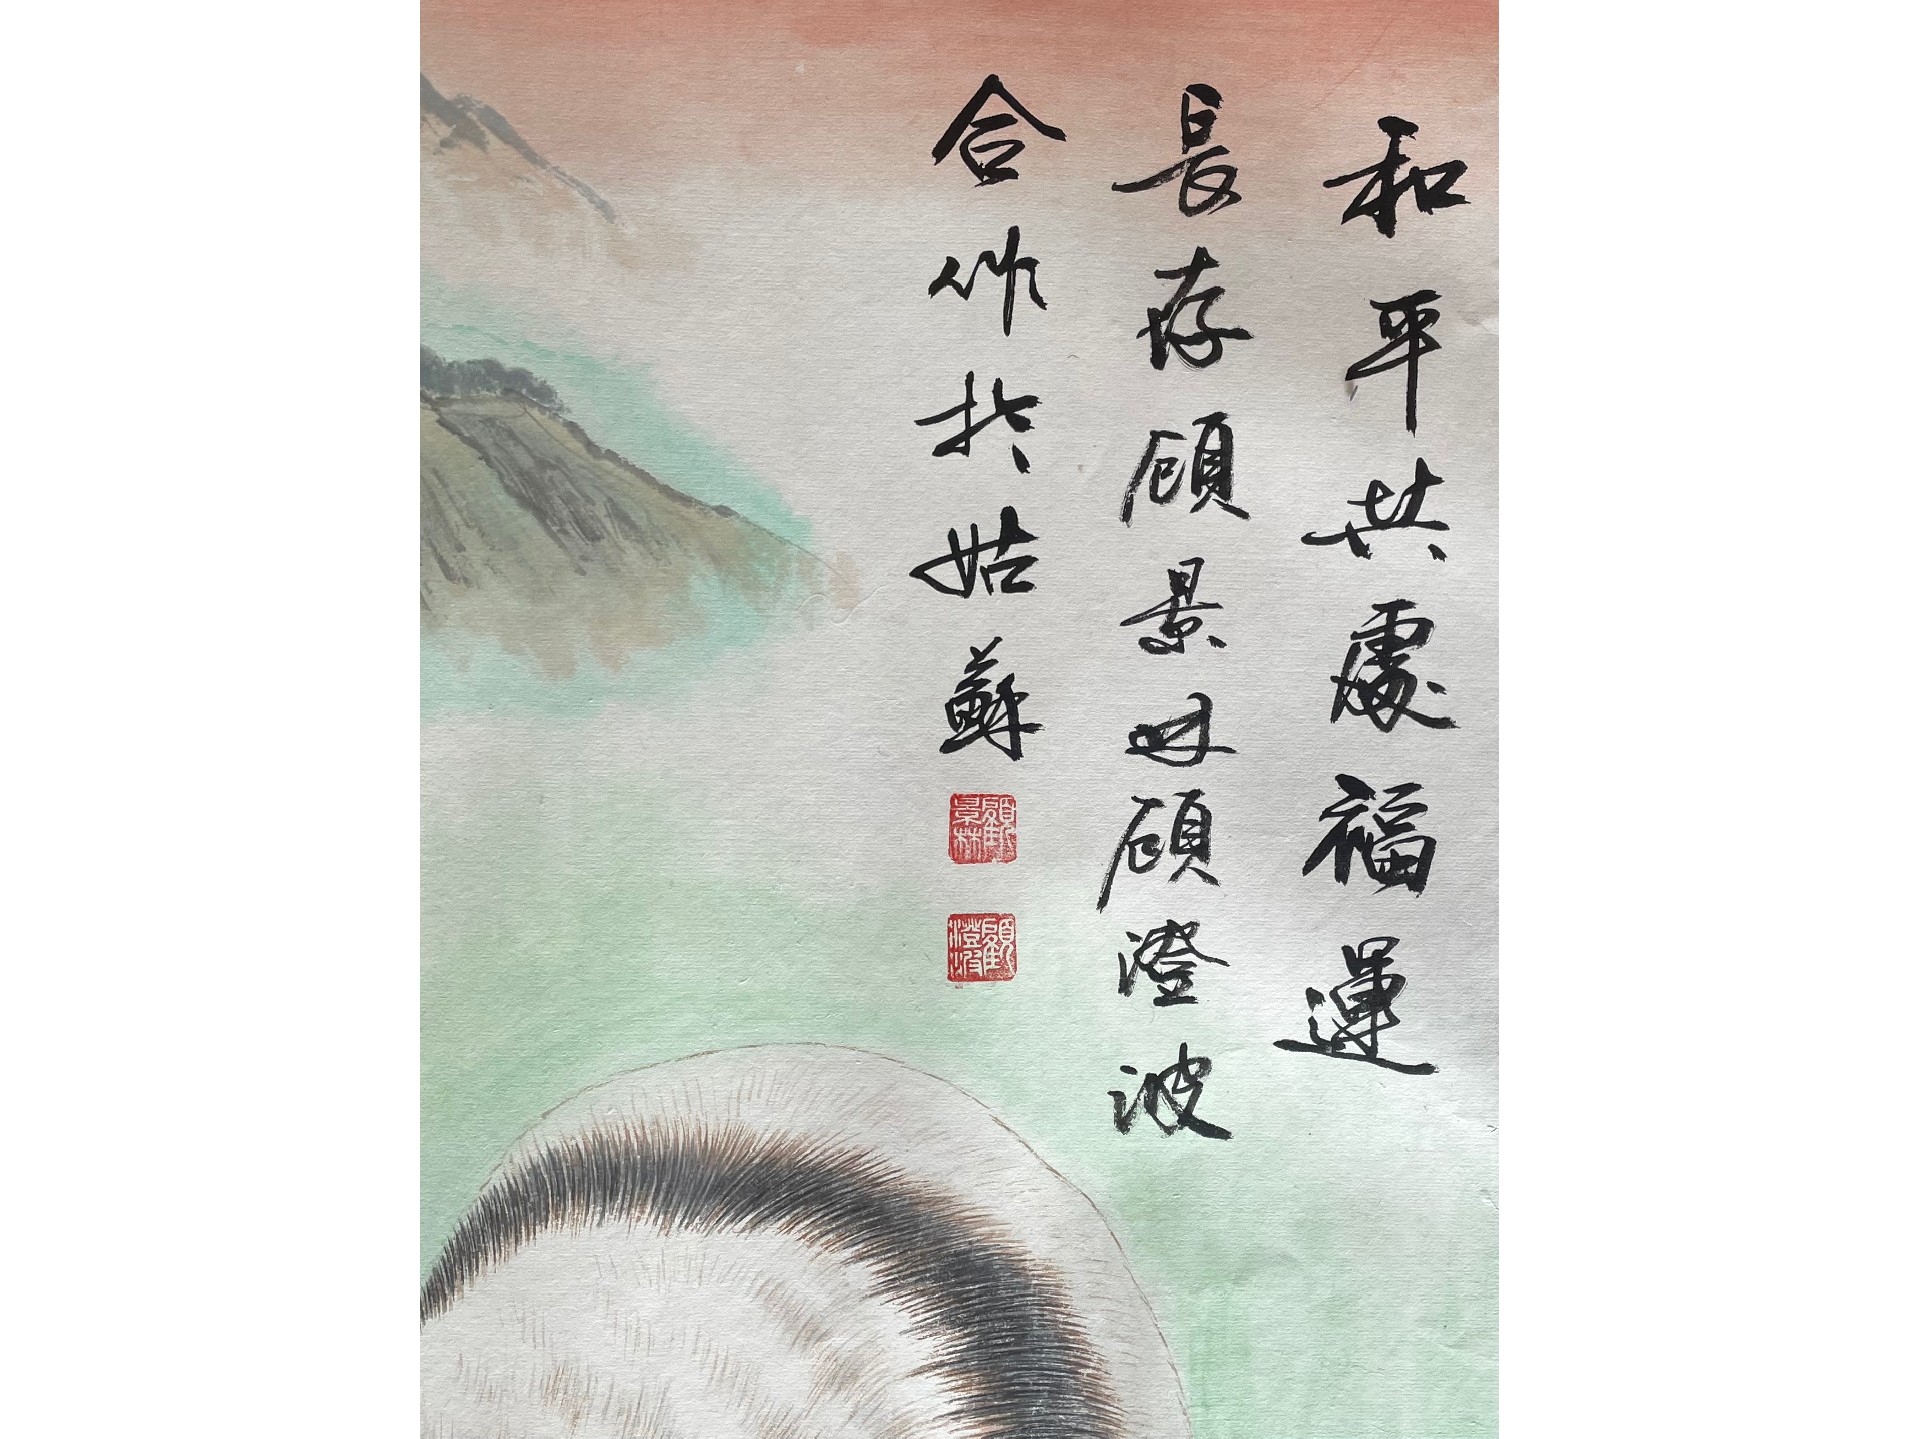 和平共處福運
長存顧景林顧澄波
合作於姑蘇
顧景林
顧澄波